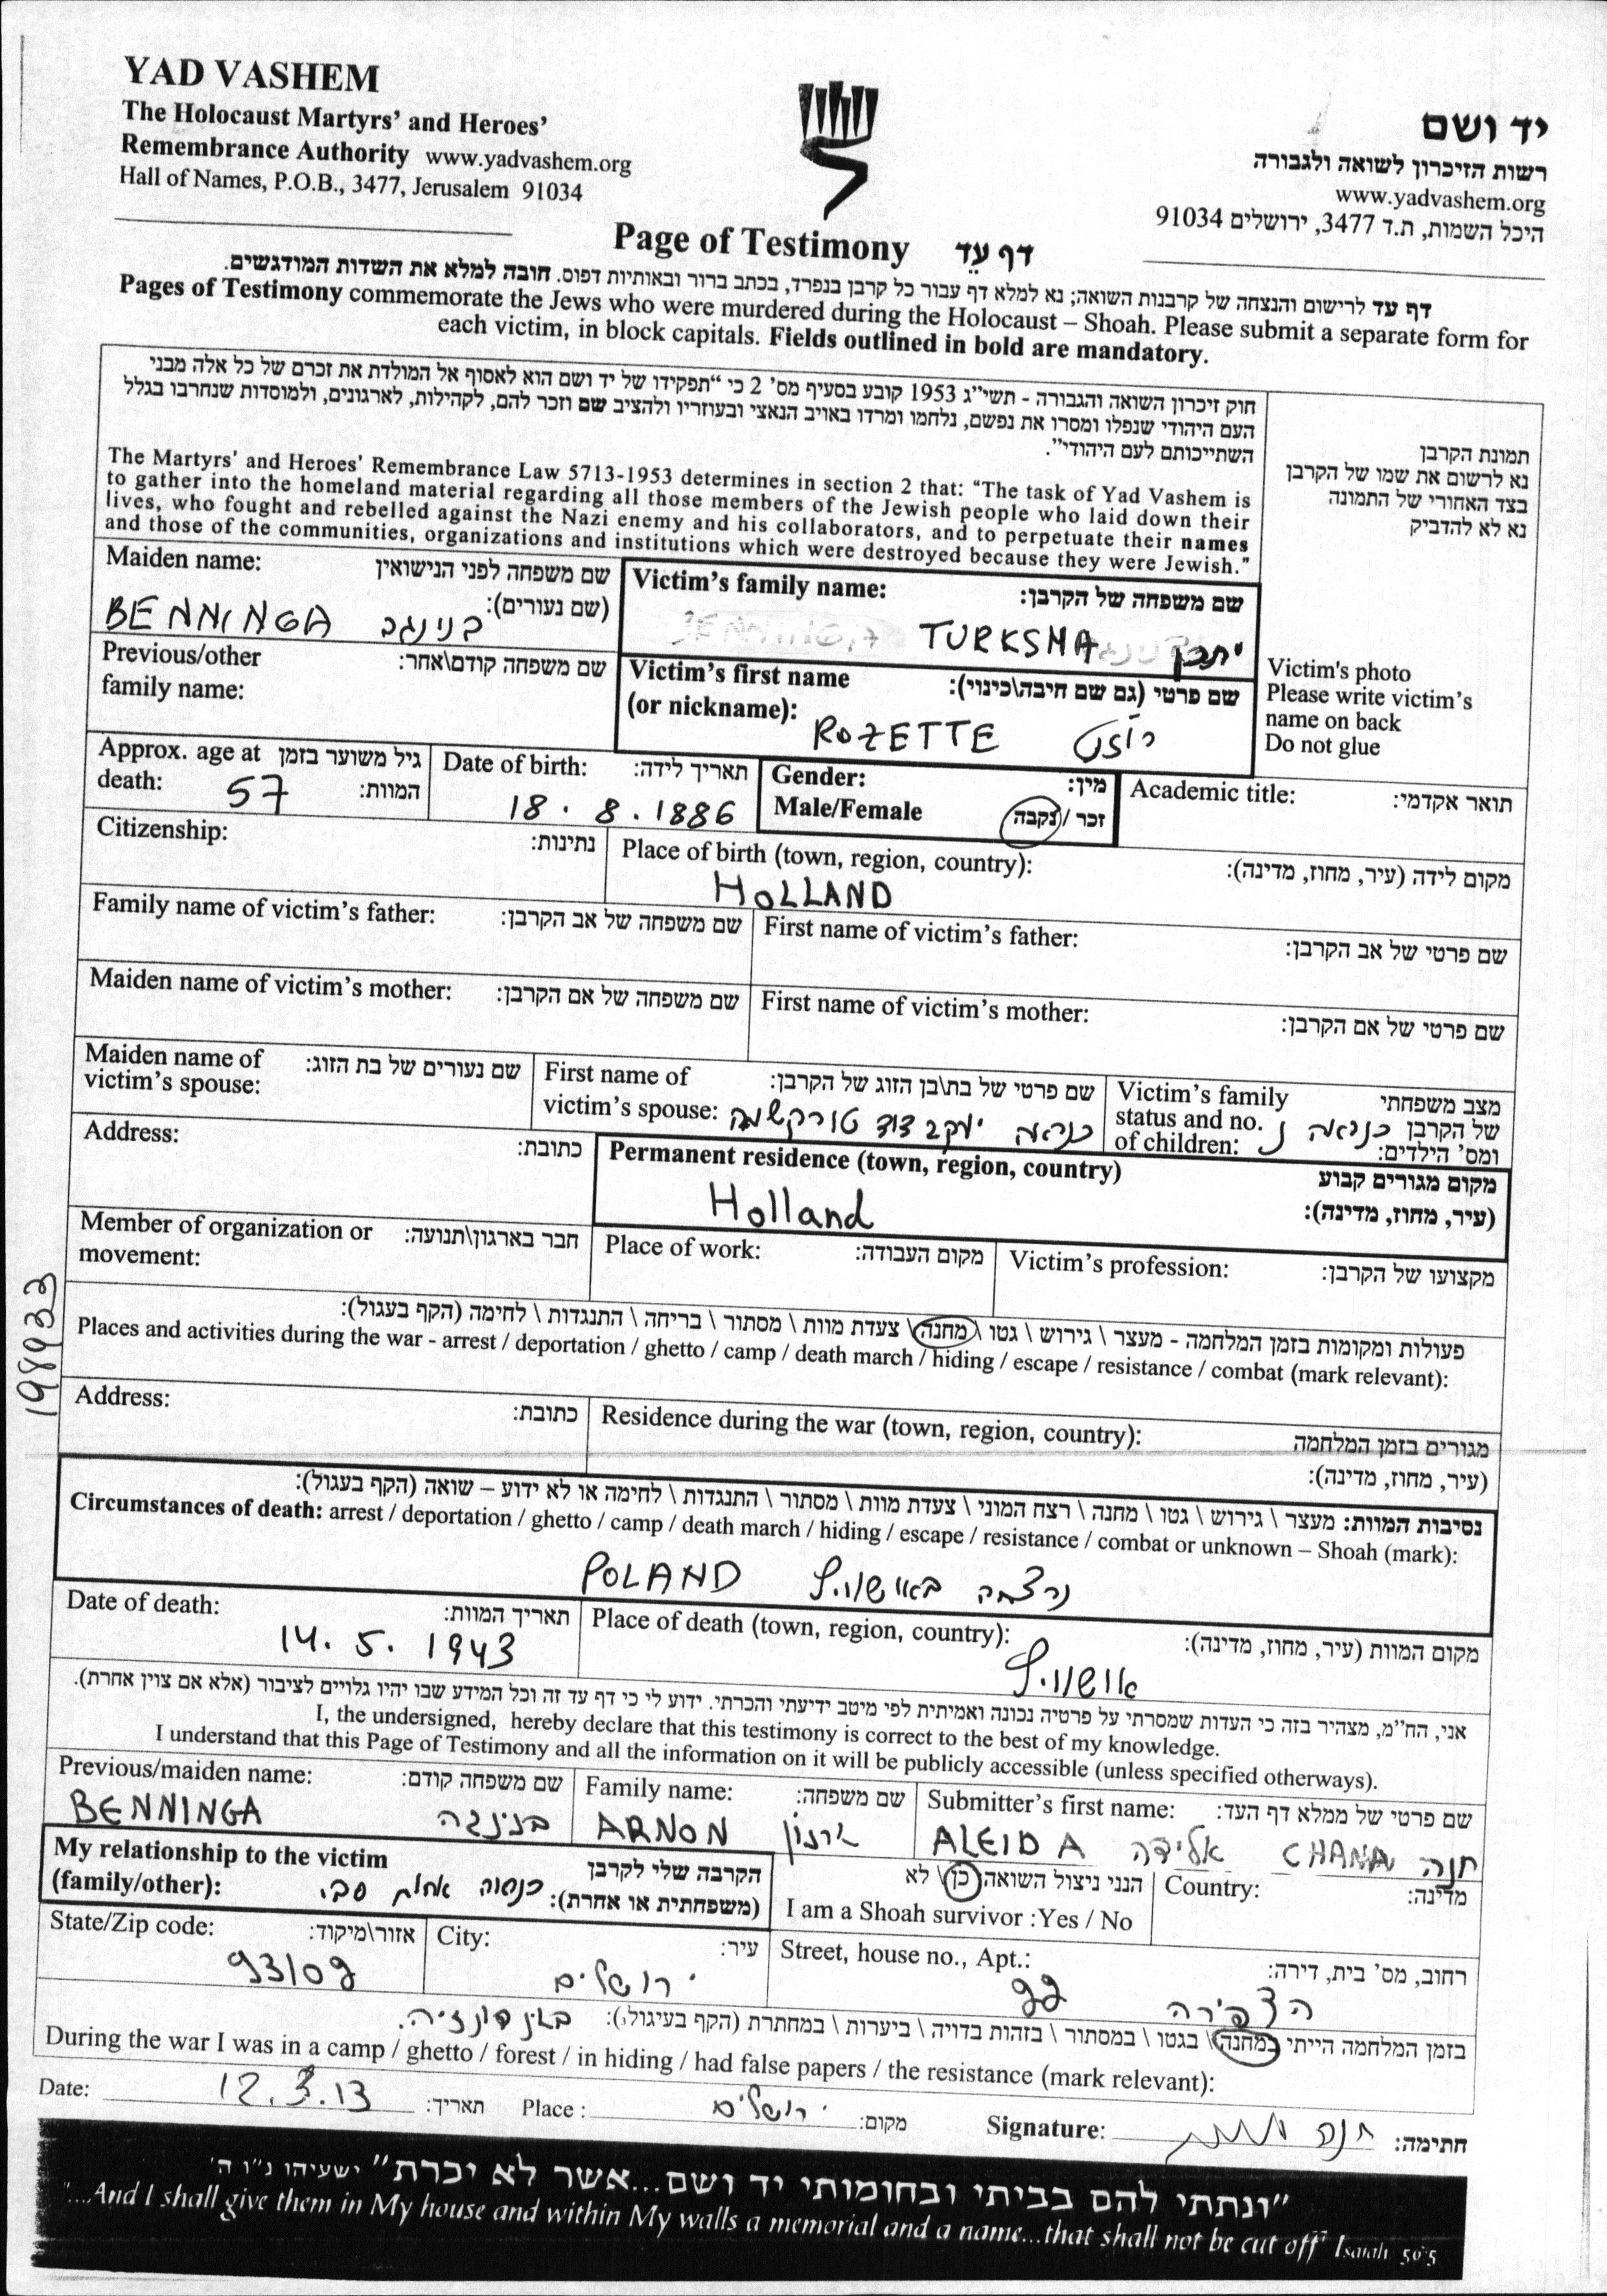 YAD VASHEM
The Holocaust Martyrs' and Heroes'
Remembrance Authority www.yadvashem.org
Hall of Names, P.O.B., 3477, Jerusalem 91034
יד ושם
רשות הזיכרון לשואה ולגבורה
www.yadvashem.org
היכל השמות, ת.ד 3477, ירושלים 91034
Page of Testimony דף עֵד
דף עד לרישום והנצחה של קרבנות השואה; נא למלא דף עבור כל קרבן בנפרד, בכתב ברור ובאותיות דפוס. חובה למלא את השדות המודגשים.
Pages of Testimony commemorate the Jews who were murdered during the Holocaust – Shoah. Please submit a separate form for
each victim, in block capitals. Fields outlined in bold are mandatory.
חוק זיכרון השואה והגבורה - תשי״ג 1953 קובע בסעיף מס' 2 כי "תפקידו של יד ושם הוא לאסוף אל המולדת את זכרם של כל אלה מבני
העם היהודי שנפלו ומסרו את נפשם, נלחמו ומרדו באויב הנאצי ובעוזריו ולהציב שם וזכר להם, לקהילות, לארגונים, ולמוסדות שנחרבו בגלל
השתייכותם לעם היהודי".
The Martyrs' and Heroes' Remembrance Law 5713-1953 determines in section 2 that: "The task of Yad Vashem is
to gather into the homeland material regarding all those members of the Jewish people who laid down their
lives, who fought and rebelled against the Nazi enemy and his collaborators, and to perpetuate their names
and those of the communities, organizations and institutions which were destroyed because they were Jewish."
תמונת הקרבן
נא לרשום את שמו של הקרבן
בצד האחורי של התמונה
נא לא להדביק
Victim's photo
Please write victim's
name on back
Do not glue
Maiden name: שם משפחה לפני הנישואין
(שם נעורים):
BENNINGA בנינגב
Victim's family name: שם משפחה של הקרבן:
BENNINGA TURKSMA
Previous/other שם משפחה קודם\אחר:
family name:
Victim's first name שם פרטי (גם שם חיבה\כינוי):
(or nickname): ROZETTE רוזט
Approx. age at גיל משוער בזמן
death: 57 המוות:
Date of birth: תאריך לידה:
18. 8. 1886
Gender: מין:
Male/Female זכר / נקבה
Academic title: תואר אקדמי:
Citizenship: נתינות:
Place of birth (town, region, country): מקום לידה (עיר, מחוז, מדינה):
HOLLAND
Family name of victim's father: שם משפחה של אב הקרבן:
First name of victim's father: שם פרטי של אב הקרבן:
Maiden name of victim's mother: שם משפחה של אם הקרבן:
First name of victim's mother: שם פרטי של אם הקרבן:
Maiden name of שם נעורים של בת הזוג:
victim's spouse:
First name of שם פרטי של בת\בן הזוג של הקרבן:
victim's spouse: כנראה יעקב דוד טורקשמה
Victim's family מצב משפחתי
status and no. של הקרבן כנראה נ
of children: ומס' הילדים:
Address: כתובת:
Permanent residence (town, region, country) מקום מגורים קבוע
Holland (עיר, מחוז, מדינה):
Member of organization or חבר בארגון\תנועה:
movement:
Place of work: מקום העבודה:
Victim's profession: מקצועו של הקרבן:
פעולות ומקומות בזמן המלחמה - מעצר \ גירוש \ גטו \ מחנה \ צעדת מוות \ מסתור \ בריחה \ התנגדות \ לחימה (הקף בעגול):
Places and activities during the war - arrest / deportation / ghetto / camp / death march / hiding / escape / resistance / combat (mark relevant):
198933
Address: כתובת:
Residence during the war (town, region, country): מגורים בזמן המלחמה
(עיר, מחוז, מדינה):
נסיבות המוות: מעצר \ גירוש \ גטו \ מחנה \ רצח המוני \ צעדת מוות \ מסתור \ התנגדות \ לחימה או לא ידוע – שואה (הקף בעגול):
Circumstances of death: arrest / deportation / ghetto / camp / death march / hiding / escape / resistance / combat or unknown – Shoah (mark):
POLAND נרצחה באושוויץ
Date of death: תאריך המוות:
14. 5. 1943
Place of death (town, region, country): מקום המוות (עיר, מחוז, מדינה):
אושוויץ
אני, הח״מ, מצהיר בזה כי העדות שמסרתי על פרטיה נכונה ואמיתית לפי מיטב ידיעתי והכרתי. ידוע לי כי דף עד זה וכל המידע שבו יהיו גלויים לציבור (אלא אם צוין אחרת).
I, the undersigned, hereby declare that this testimony is correct to the best of my knowledge.
I understand that this Page of Testimony and all the information on it will be publicly accessible (unless specified otherways).
Previous/maiden name: שם משפחה קודם:
BENNINGA בנינגה
Family name: שם משפחה:
ARNON ארנון
Submitter's first name: שם פרטי של ממלא דף העד:
ALEIDA אלידה CHANA חנה
My relationship to the victim הקרבה שלי לקרבן
(family/other): (משפחתית או אחרת): כנראה אחות סבי
הנני ניצול השואה: כן \ לא
I am a Shoah survivor :Yes / No
Country: מדינה:
State/Zip code: אזור\מיקוד:
93109
City: עיר:
ירושלים
Street, house no., Apt.: רחוב, מס' בית, דירה:
הצפירה 22
בזמן המלחמה הייתי במחנה \ בגטו \ במסתור \ בזהות בדויה \ ביערות \ במחתרת (הקף בעיגול):
During the war I was in a camp / ghetto / forest / in hiding / had false papers / the resistance (mark relevant):
Date: 12.3.13 תאריך: Place : ירושלים מקום: Signature: חנה חתימה:
"ונתתי להם בביתי ובחומותי יד ושם...אשר לא יכרת" ישעיהו נ״ו ה'
"....And I shall give them in My house and within My walls a memorial and a name...that shall not be cut off" Isaiah 56:5